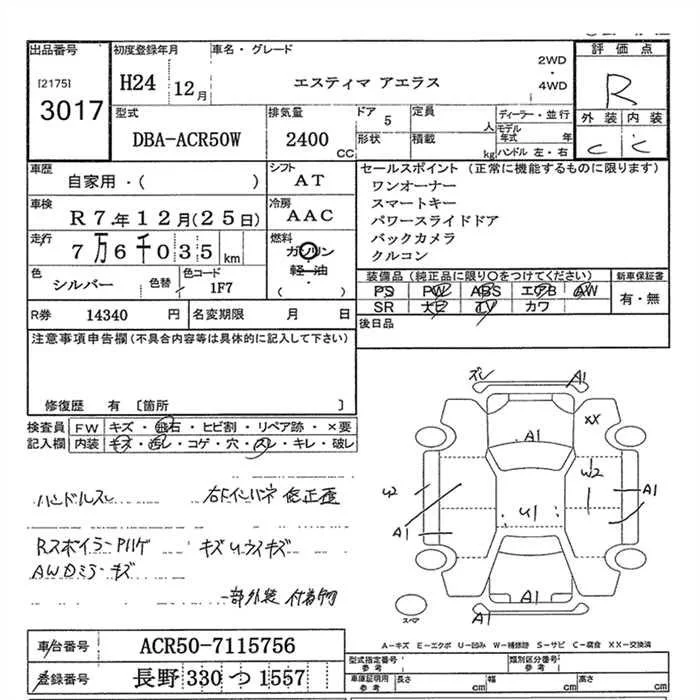 出品番号 初度登録年月 車名・グレード 評価点
[2175] 3017 H24 12月 エスティマ アエラス 2WD・4WD R
型式 排気量 ドア 5 定員 人 ディーラー・並行 外装 内装
DBA-ACR50W 2400 CC 形状 積載 kg モデル年式 年 ハンドル 左・右 C C
車歴 自家用・( ) シフト AT セールスポイント (正常に機能するものに限ります)
ワンオーナー
車検 R7.年12月(25日) 冷房 AAC スマートキー
パワースライドドア
走行 7万6千035 km 燃料 ガソリン 軽油 ( ) バックカメラ
クルコン
色 シルバー 色替 色コード 1F7 装備品 (純正品に限り○をつけてください) 新車保証書
PS PW ABS エアB AW 有・無
SR ナビ TV カワ
R券 14340 円 名変期限 月 日 後日品
注意事項申告欄 (不具合内容等は具体的に記入して下さい)
修復歴 有 〔箇所 〕
検査員 FW キズ・飛石・ヒビ割・リペア跡・×要
記入欄 内装 キズ・汚レ・コゲ・穴・スレ・キレ・破レ
ズレ A1
XX
A1
W2
W2 A1
U1
A1
A1
A1
スペア
ハンドルスレ 右Fインパネ 修正歴
Rスポイラーハゲ キズ
AWDミラーキズ
一部外装 付着物
A-キズ E-エクボ U-凹み W-補修跡 S-サビ C-腐食 XX-交換済
車台番号 ACR50-7115756 型式指定番号 参考 類別区分番号 参考
登録番号 長野 330 つ 1557 車庫証明用 参考 長さ cm 幅 cm 高さ cm